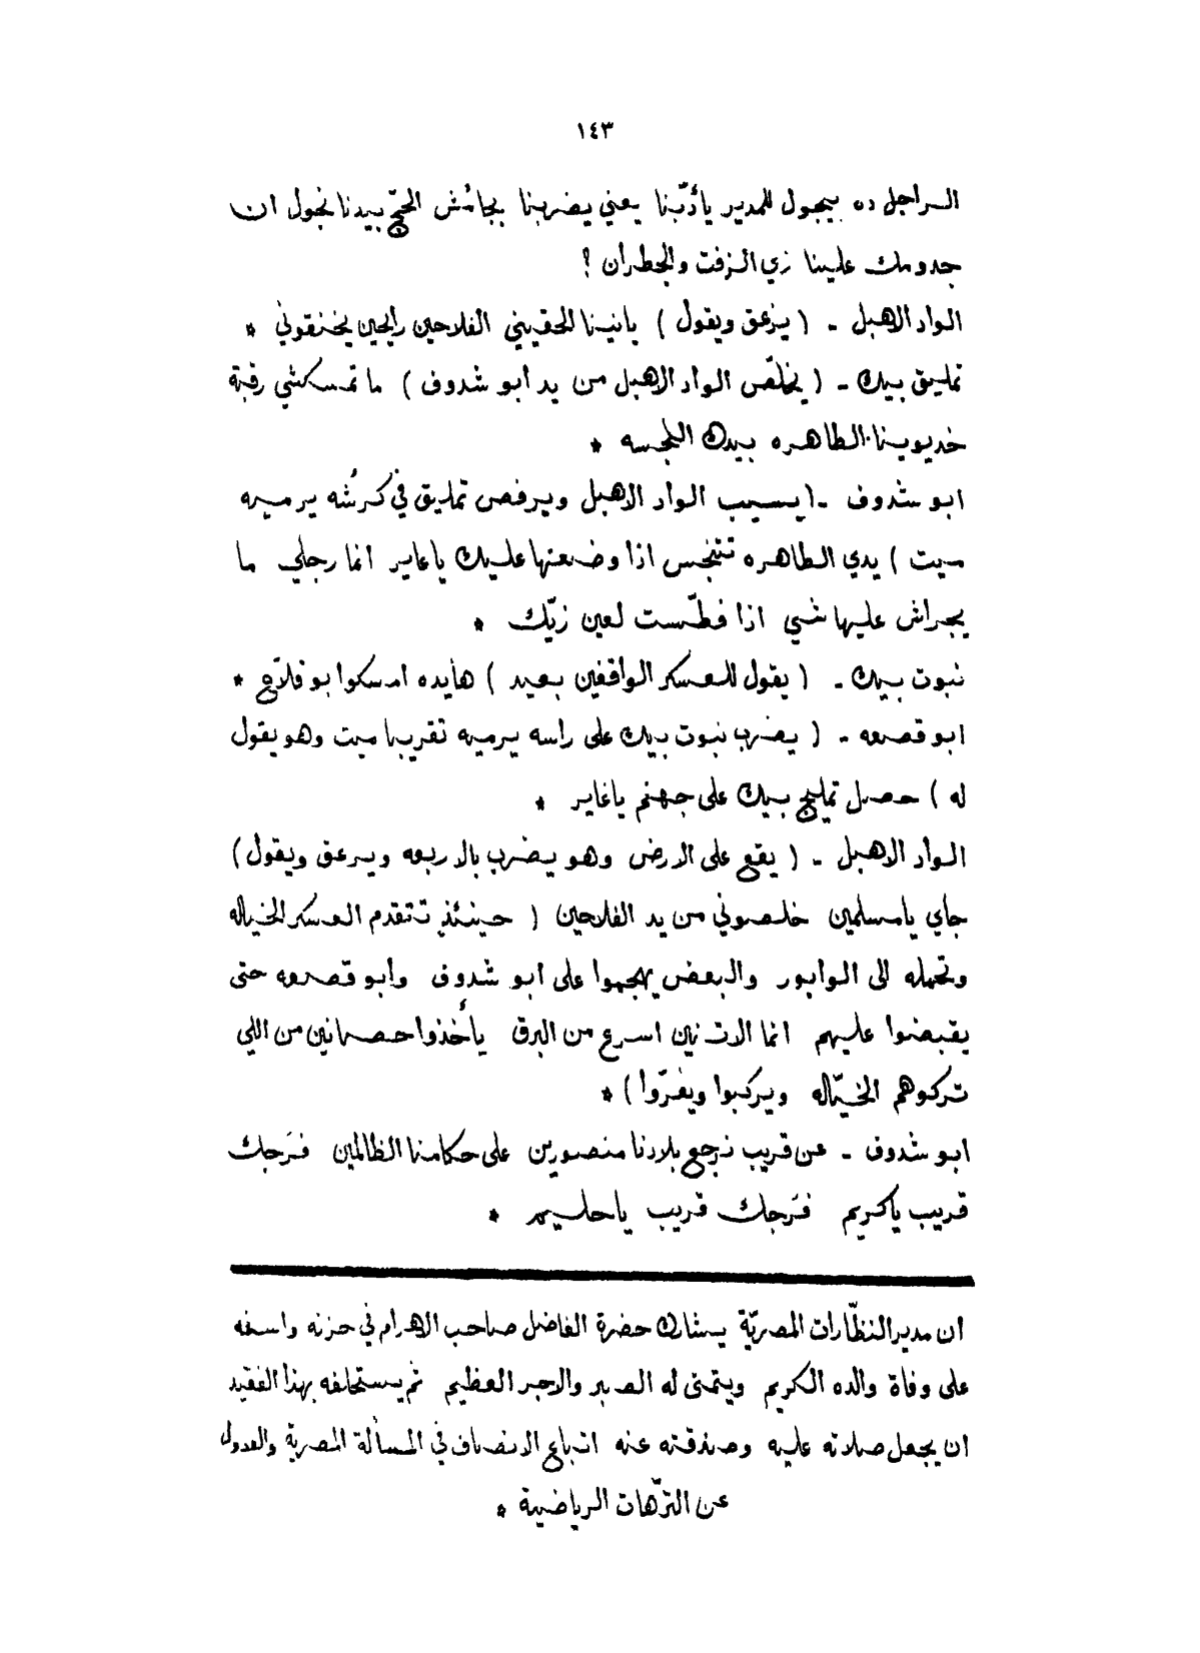 ١٤٣
الراجل ده بيجول للمدير يأدّبنا يعني يضربنا بجامش الحجّ بيدنا نجول ان
جدومك علينا زي الزفت والجطران ؟
الواد الاهبل - ( يزعق ويقول ) يانينا الحقيني الفلاحين رايحين يخنقوني *
تمليق بيك - ( يخلّص الواد الاهبل من يد ابو شدوف ) ما تمسكشي رقبة
خديوينا الطاهره بيدك النجسه *
ابو شدوف - ( يسيب الواد الاهبل ويرفص تمليق في كرشه يرميه
ميت ) يدي الطاهره تتنجس اذا وضعتها عليك ياغاير انما رجلي ما
يجراش عليها شي اذا فطّست لعين زيّك *
نبوت بيك - ( يقول للعسكر الواقفين بعيد ) هايده امسكوا بو فلاّح *
ابو قصعه - ( يضرب نبوت بيك على راسه يرميه تقريبا ميت وهو يقول
له ) حصل تمليج بيك على جهنم ياغاير *
الواد الاهبل - ( يقع على الارض وهو يضرب بالاربعه ويزعق ويقول )
جاي يامسلمين خلصوني من يد الفلاحين ( حينئذ تتقدم العسكر الخياله
وتحمله الى الوابور والبعض يهجموا على ابو شدوف وابو قصعه حتى
يقبضوا عليهم انما الاتنين اسرع من البرق يأخذوا حصانين من اللي
تركوهم الخيّاله ويركبوا ويفرّوا ) *
ابو شدوف - عن قريب نرجع بلادنا منصورين على حكامنا الظالمين فَرَجك
قريب ياكريم فَرَجك قريب ياحليم *
ان مدير النظّارات المصريّة يشارك حضرة الفاضل صاحب الاهرام في حزنه واسفه
على وفاة والده الكريم ويتمنى له الصبر والاجر العظيم ثم يستحلفه بهذا الفقيد
ان يجعل صلاته عليه وصدقته عنه اتباع الانصاف في المسألة المصرية والعدول
عن الترّهات الرياضية *